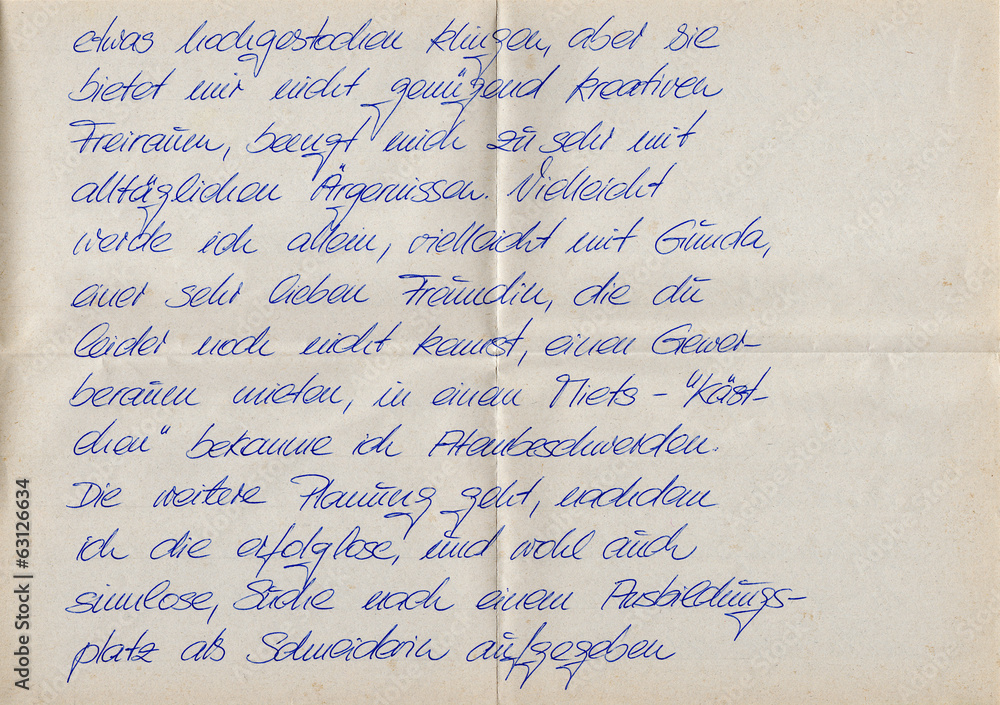 etwas hochgestochen klingen, aber sie
bietet mir nicht genügend kreativen
Freiraum, beengt mich zu sehr mit
alltäglichen Ärgernissen. Vielleicht
werde ich allein, vielleicht mit Gunda,
einer sehr lieben Freundin, die du
leider noch nicht kennst, einen Gewer-
beraum mieten, in einem Miets-"Käst-
chen" bekomme ich Atembeschwerden.
Die weitere Planung geht, nachdem
ich die erfolglose, und wohl auch
sinnlose, Suche nach einem Ausbildungs-
platz als Schneiderin aufgegeben
Adobe Stock | #63126634